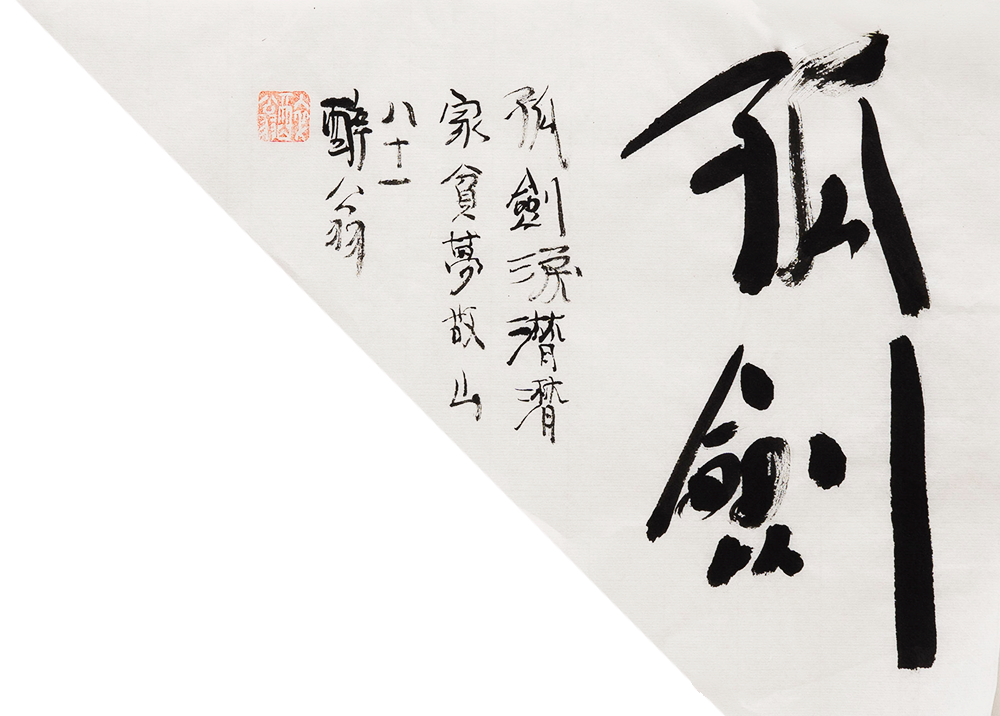 孤劍
孤劍淚潸潸
家貧夢故山
八十一
醉翁
醉翁